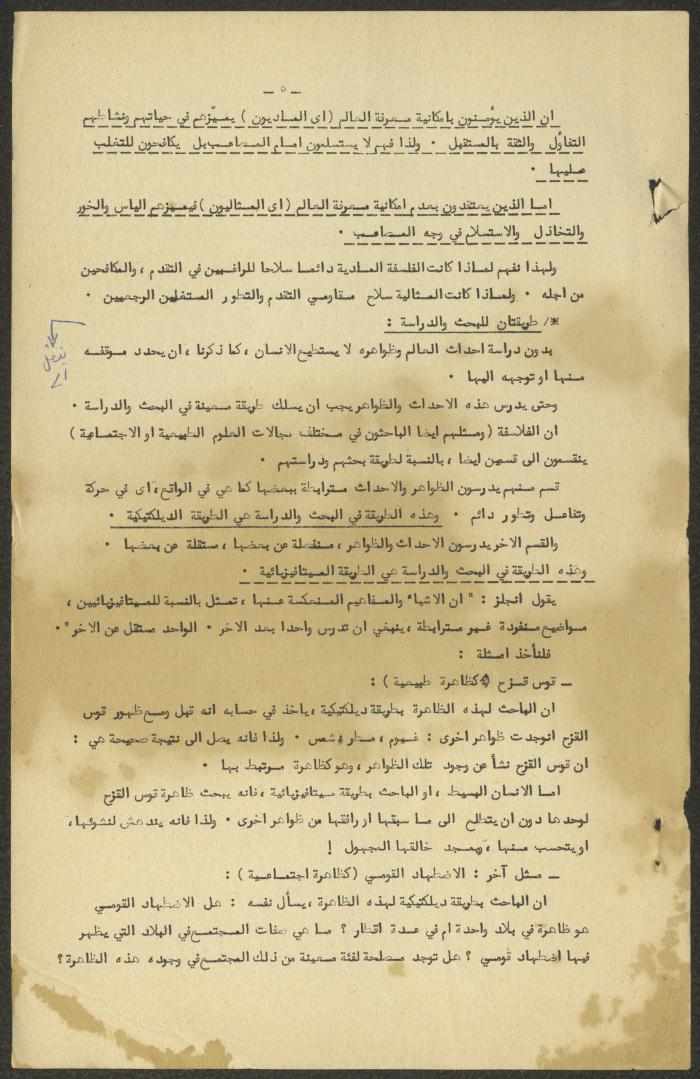 — ٥ —
ان الذين يؤمنون بامكانية معرفة العالم (اى الماديون ) يميّزهم في حياتهم ونشاطهم
التفاؤل والثقة بالمستقبل ٠ ولذا فهم لا يستسلمون امام المصاعب بل يكافحون للتغلب
عليها ٠
اما الذين يعتقدون بعدم امكانية معرفة العالم (اى المثاليون ) فيميزهم الياس والخور
والتخاذل والاستسلام في وجه المصاعب ٠
ولهذا نفهم لماذا كانت الفلسفة المادية دائما سلاحا للراغبين في التقدم ، والمكافحين
من اجله ٠ ولماذا كانت المثالية سلاح مقاومي التقدم والتطور المستغلين الرجعيين ٠
*/ طريقتان للبحث والدراسة :
بدون دراسة احداث العالم وظواهره لا يستطيع الانسان ، كما ذكرنا ، ان يحدد موقفه
منها او توجهه اليها ٠
وحتى يدرس هذه الاحداث والظواهر يجب ان يسلك طريقة معينة في البحث والدراسة ٠
ان الفلاسفة (ومثلهم ايضا الباحثون في مختلف مجالات العلوم الطبيعية او الاجتماعية )
ينقسمون الى قسمين ايضا ، بالنسبة لطريقة بحثهم ودراستهم ٠
قسم منهم يدرسون الظواهر والاحداث مترابطة ببعضها كما هي في الواقع ، اى في حركة
وتفاعل وتطور دائم ٠ وهذه الطريقة في البحث والدراسة هي الطريقة الديلكتيكية ٠
والقسم الاخر يدرسون الاحداث والظواهر ، منفصلة عن بعضها ، مستقلة عن بعضها ٠
وهذه الطريقة في البحث والدراسة هي الطريقة الميتافيزيائية ٠
يقول انجلز : " ان الاشياء والمفاهيم المنعكسة عنها ، تمثل بالنسبة للميتافيزيائيين ،
مواضيع منفردة غير مترابطة ، ينبغي ان تدرس واحدا بعد الاخر ٠ الواحد مستقل عن الاخر " ٠
فلنأخذ امثلة :
— قوس قزح ( كظاهرة طبيعية ) :
ان الباحث لهذه الظاهرة بطريقة ديلكتيكية ، ياخذ في حسابه انه قبل ومع ظهور قوس
القزح انوجدت ظواهر اخرى : غيوم ، مطر ، شمس ٠ ولذا فانه يصل الى نتيجة صحيحة هي :
ان قوس القزح نشأ عن وجود تلك الظواهر ، وهو كظاهرة مرتبط بها ٠
اما الانسان البسيط ، او الباحث بطريقة ميتافيزيائية ، فانه يبحث ظاهرة قوس القزح
لوحدها دون ان يتطلع الى ما سبقها او رافقها من ظواهر اخرى ٠ ولذا فانه يندهش لنشوئها ،
او يتحسب منها ، ويمجد خالقها المجهول !
— مثل آخر : الاضطهاد القومي (كظاهرة اجتماعية ) :
ان الباحث بطريقة ديلكتيكية لهذه الظاهرة ، يسأل نفسه : هل الاضطهاد القومي
هو ظاهرة في بلاد واحدة ام في عدة اقطار ؟ ما هي صفات المجتمع في البلاد التي يظهر
فيها اضطهاد قومي ؟ هل توجد مصلحة لفئة معينة من ذلك المجتمع في وجوده هذه الظاهرة ؟